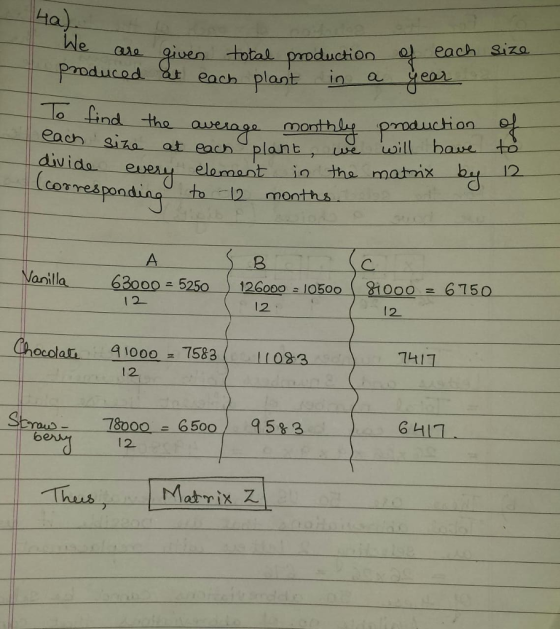 4a).
We are given total production of each size
produced at each plant in a year
To find the average monthly production of
each size at each plant, we will have to
divide every element in the matrix by 12
(corresponding to 12 months.
A B C
Vanilla 63000/12 = 5250 126000/12 = 10500 81000/12 = 6750
Chocolate 91000/12 = 7583 11083 7417
Straw-
berry 78000/12 = 6500 9583 6417.
Thus, Matrix Z